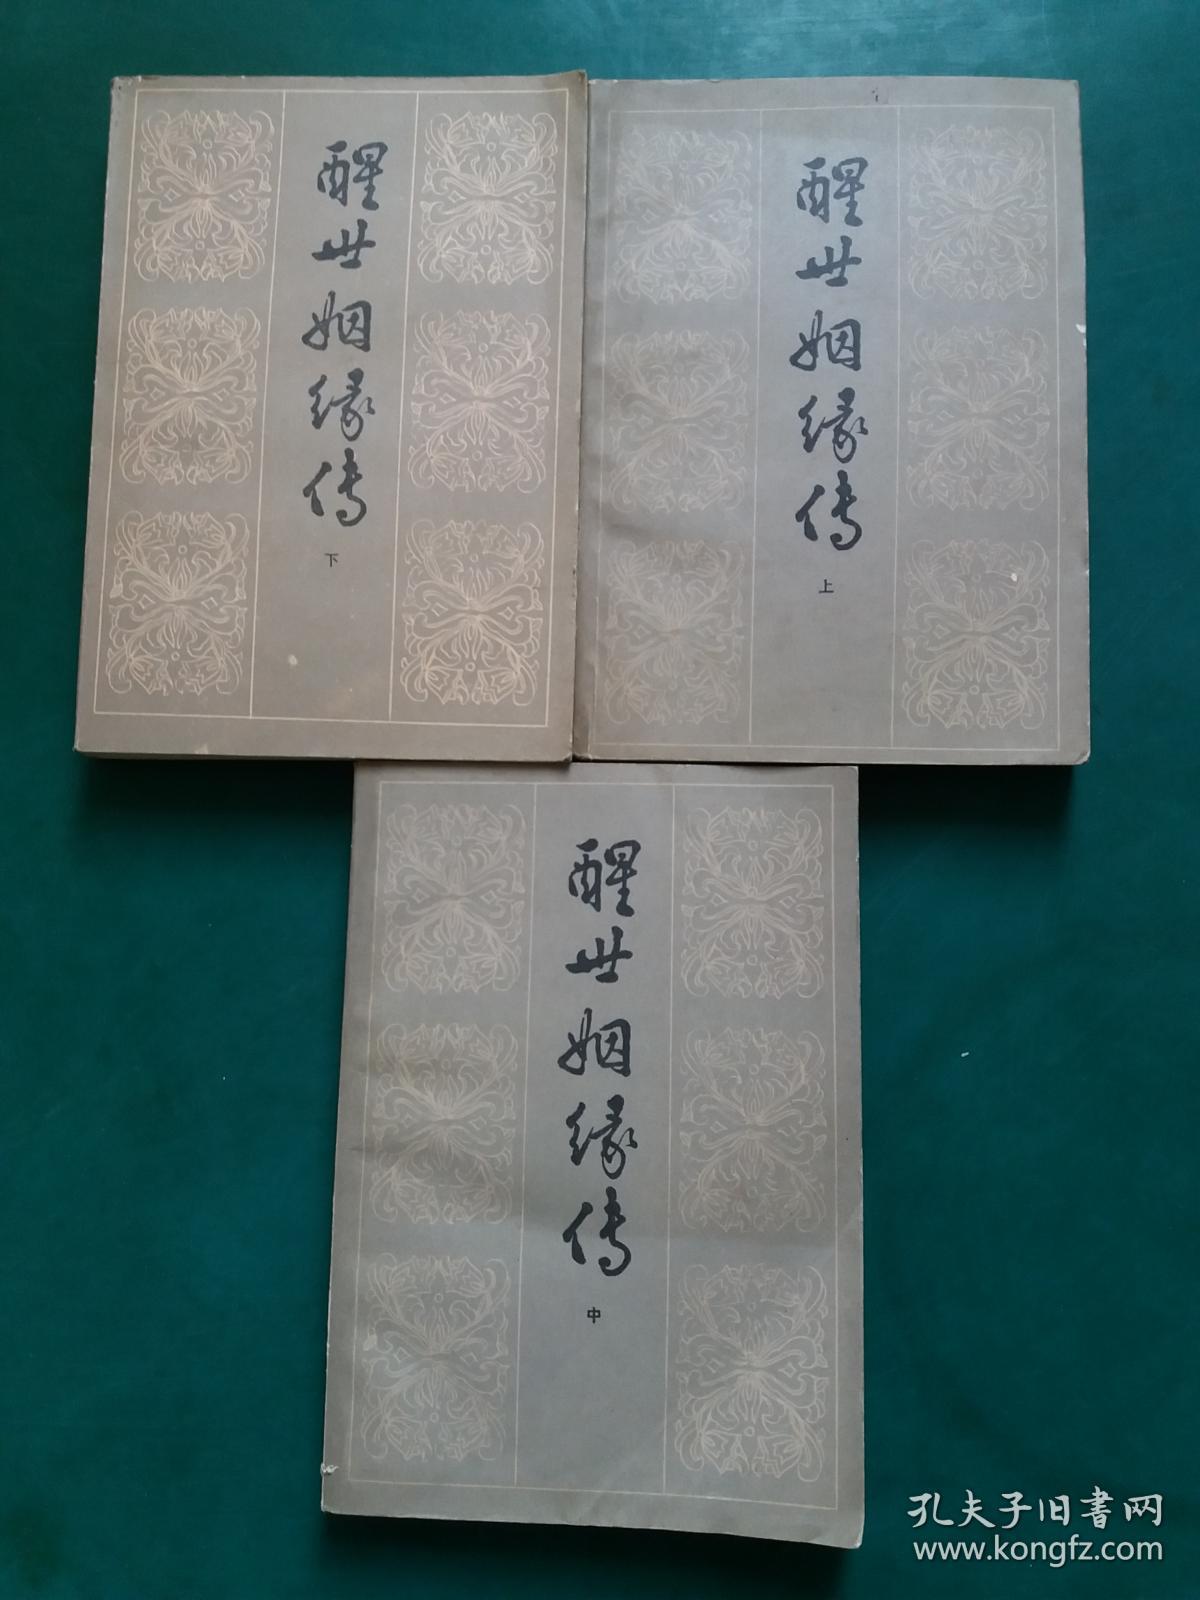 醒世姻缘传
下
醒世姻缘传
上
醒世姻缘传
中
孔夫子旧書网
www.kongfz.com